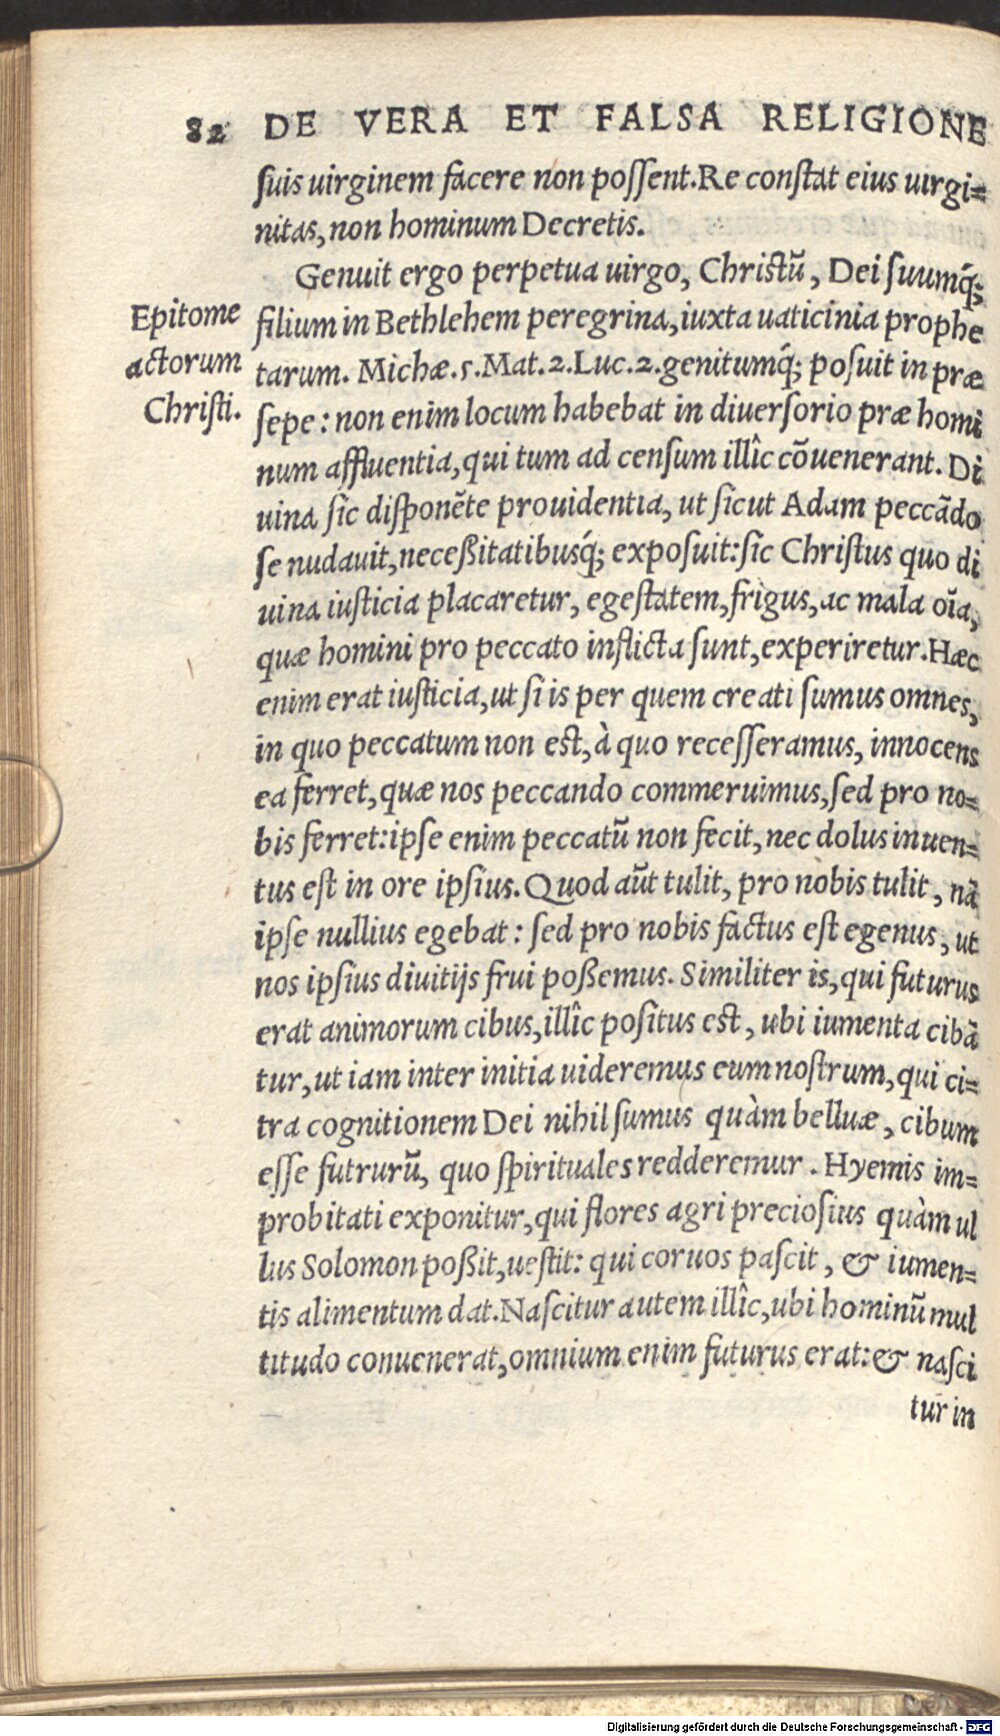 82 DE VERA ET FALSA RELIGIONE
suis uirginem facere non possent. Re constat eius uirgi=
nitas, non hominum Decretis.
Genuit ergo perpetua uirgo, Christū, Dei suumq́;
Epitome
actorum
Christi.
filium in Bethlehem peregrina, iuxta uaticinia prophe
tarum. Michæ. 5. Mat. 2. Luc. 2. genitumq́; posuit in præ
sepe: non enim locum habebat in diuersorio præ homi
num affluentia, qui tum ad censum illîc cōuenerant. Di
uina sic disponēte prouidentia, ut sicut Adam peccādo
se nudauit, neceßitatibusq́; exposuit: sic Christus quo di
uina iusticia placaretur, egestatem, frigus, ac mala oīa,
quæ homini pro peccato inflicta sunt, experiretur. Hæc
enim erat iusticia, ut si is per quem creati sumus omnes,
in quo peccatum non est, à quo recesseramus, innocens
ea ferret, quæ nos peccando commeruimus, sed pro no=
bis ferret: ipse enim peccatū non fecit, nec dolus inuen=
tus est in ore ipsius. Quod aūt tulit, pro nobis tulit, nā
ipse nullius egebat: sed pro nobis factus est egenus, ut
nos ipsius diuitijs frui poßemus. Similiter is, qui futurus
erat animorum cibus, illîc positus est, ubi iumenta cibā
tur, ut iam inter initia uideremus eum nostrum, qui ci=
tra cognitionem Dei nihil sumus quàm belluæ, cibum
esse futrurū, quo spirituales redderemur. Hyemis im=
probitati exponitur, qui flores agri preciosius quàm ul
lus Solomon poßit, uestit: qui coruos pascit, & iumen=
tis alimentum dat. Nascitur autem illîc, ubi hominū mul
titudo conuenerat, omnium enim futurus erat: & nasci
tur in
Digitalisierung gefördert durch die Deutsche Forschungsgemeinschaft - DFG